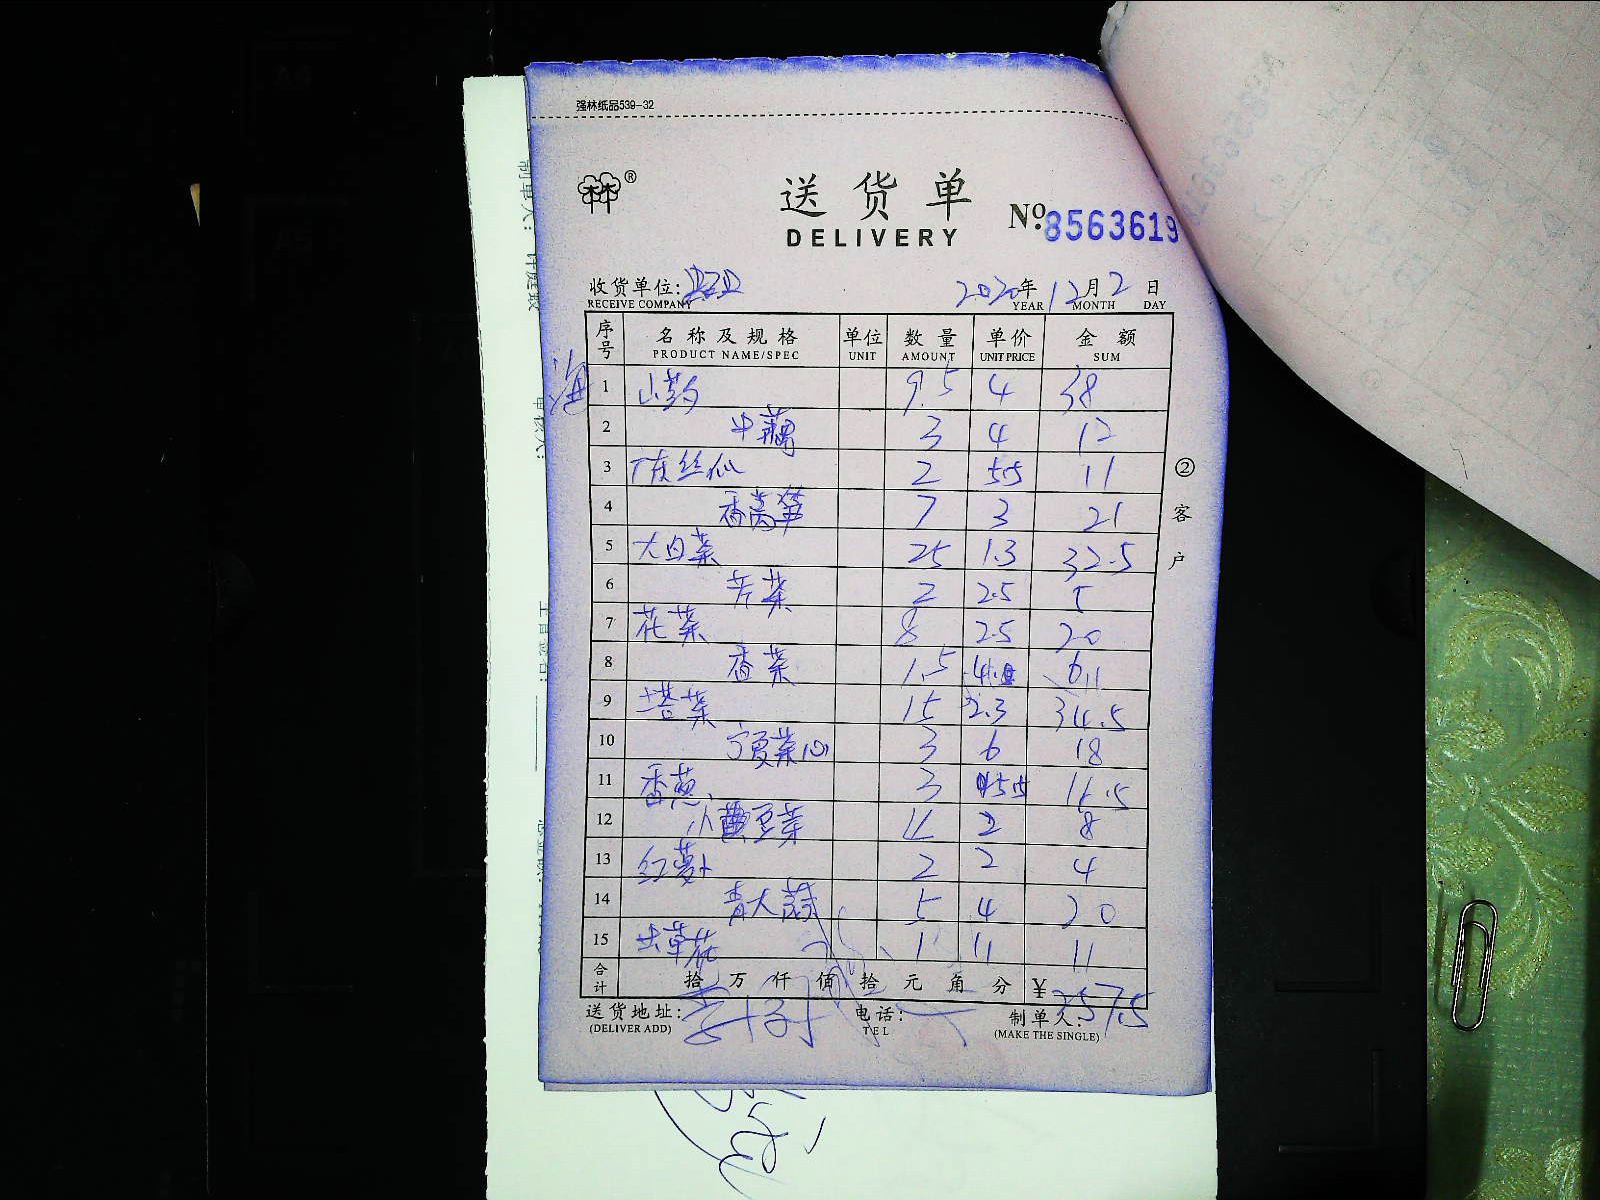 强林纸品539-32
林林®
送货单
DELIVERY
No. 8563619
收货单位:
RECEIVE COMPANY
2020年12月2日
YEAR MONTH DAY
序号 名称及规格 单位 数量 单价 金额
PRODUCT NAME/SPEC UNIT AMOUNT UNIT PRICE SUM
1 山药 9.5 4 38
2 中藕 3 4 12
3 2 5.5 11
4 香莴笋 7 3 21
5 大白菜 25 1.3 32.5
6 芹菜 2 2.5 5
7 花菜 8 2.5 20
8 香菜 1.5 6.1
9 塔菜 15 2.3 34.5
10 宁夏菜心 3 6 18
11 香葱 3 5.5 16.5
12 小黄豆芽 4 2 8
13 红萝卜 2 2 4
14 青大蒜 5 4 20
15 虫草花 1 11 11
合计 拾万仟佰拾元角分 ¥ 257.5
送货地址:
(DELIVER ADD)
电话:
TEL
制单人:
(MAKE THE SINGLE)
②客户
制单人:
审核人: